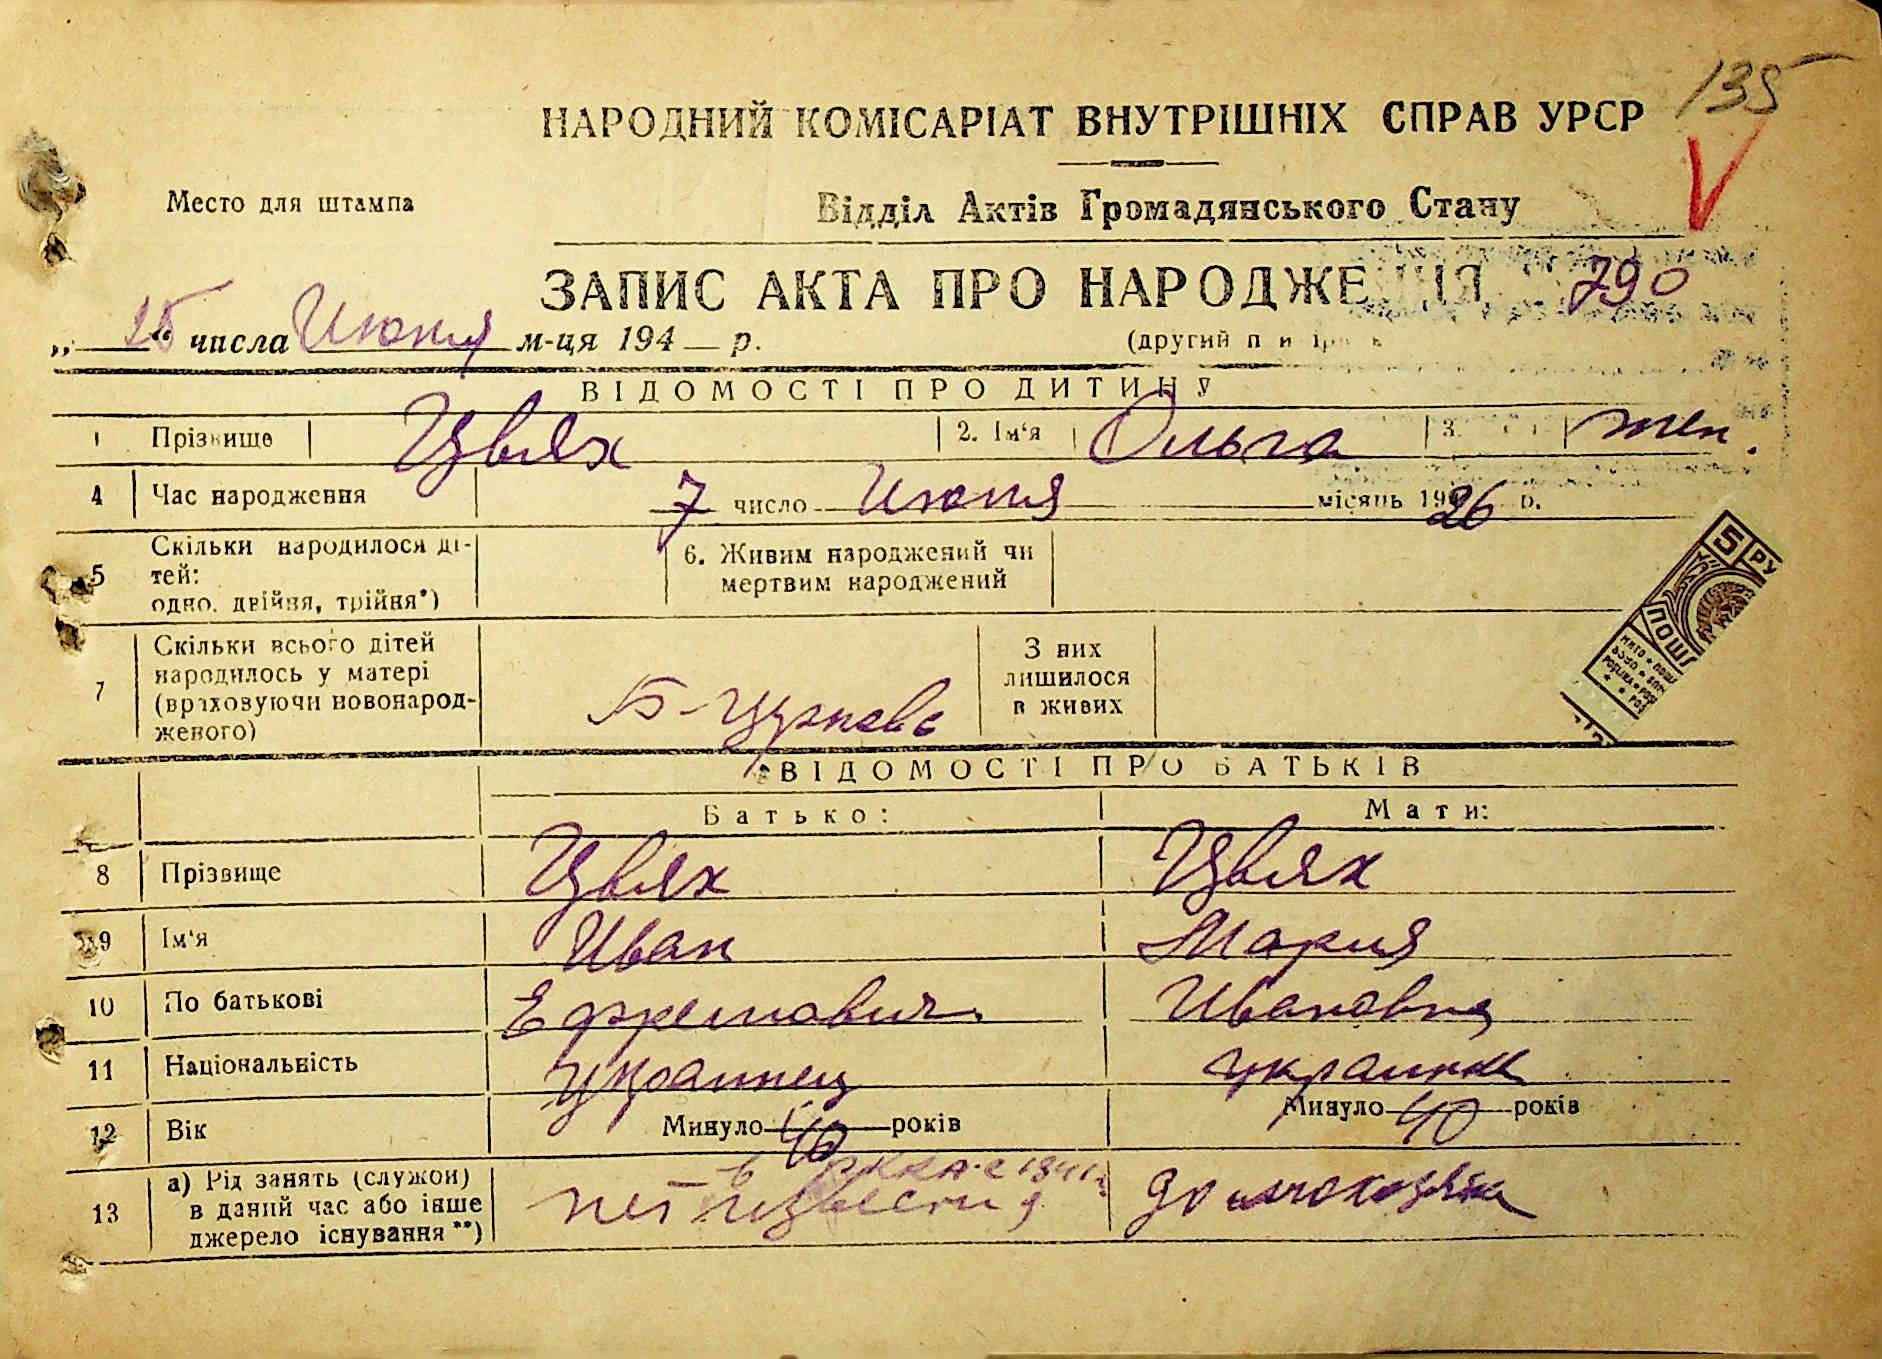 135
НАРОДНИЙ КОМІСАРІАТ ВНУТРІШНІХ СПРАВ УРСР
Место для штампа
Відділ Актів Громадянського Стану
ЗАПИС АКТА ПРО НАРОДЖЕННЯ 790
„ 25 “ числа Июня м-ця 194 р.
(другий
ВІДОМОСТІ ПРО ДИТИНУ
1 Прізвище Цвях 2. Ім'я Ольга 3. жен.
4 Час народження 7 число Июня місяць 1926 р.
5 Скільки народилося ді-
тей:
одно, двійня, трійня*)
6. Живим народжений чи
мертвим народжений
7 Скільки всього дітей
народилось у матері
(враховуючи новонарод-
женого)
Б-Церковь
З них
лишилося
в живих
5 РУ
ПОШ
ВІДОМОСТІ ПРО БАТЬКІВ
Батько: Мати:
8 Прізвище Цвях Цвях
9 Ім'я Иван Мария
10 По батькові Ефремович Ивановна
11 Національність украинец украинка
12 Вік Минуло 40 років Минуло 40 років
13 а) Рід занять (служби)
в даний час або інше
джерело існування**)
в РККА с 1941 г.
нет известия
домохозяйка